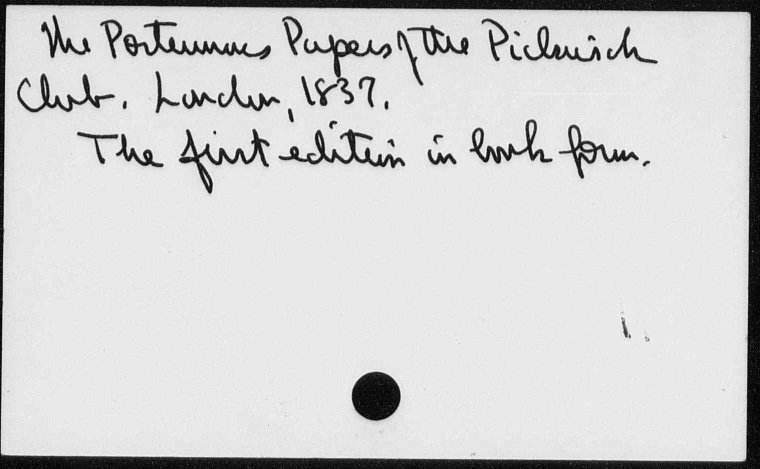 The Postumous Papers of the Pickwick
Club. London, 1837.
The first edition in book form.